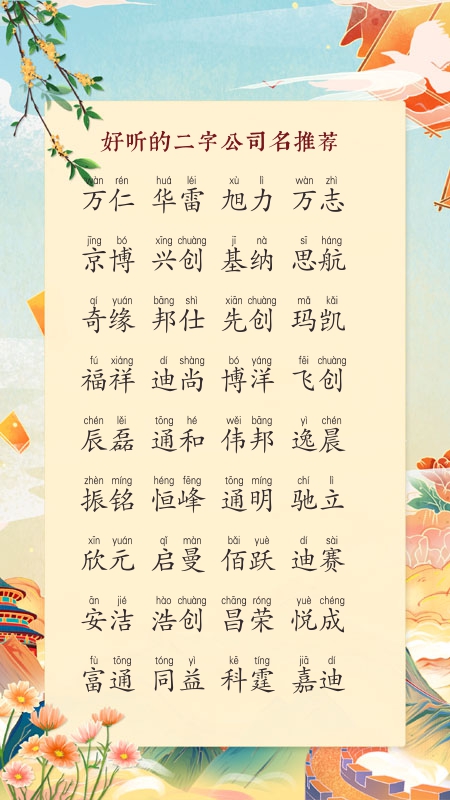 好听的二字公司名推荐
wàn rén huá léi xù lì wàn zhì
万仁 华雷 旭力 万志
jīng bó xīng chuàng jī nà sī háng
京博 兴创 基纳 思航
qí yuán bāng shì xiān chuàng mǎ kǎi
奇缘 邦仕 先创 玛凯
fú xiáng dí shàng bó yáng fēi chuàng
福祥 迪尚 博洋 飞创
chén lěi tōng hé wěi bāng yì chén
辰磊 通和 伟邦 逸晨
zhèn míng héng fēng tōng míng chí lì
振铭 恒峰 通明 驰立
xīn yuán qǐ màn bǎi yuè dí sài
欣元 启曼 佰跃 迪赛
ān jié hào chuàng chāng róng yuè chéng
安洁 浩创 昌荣 悦成
fù tōng tóng yì kē tíng jiā dí
富通 同益 科霆 嘉迪